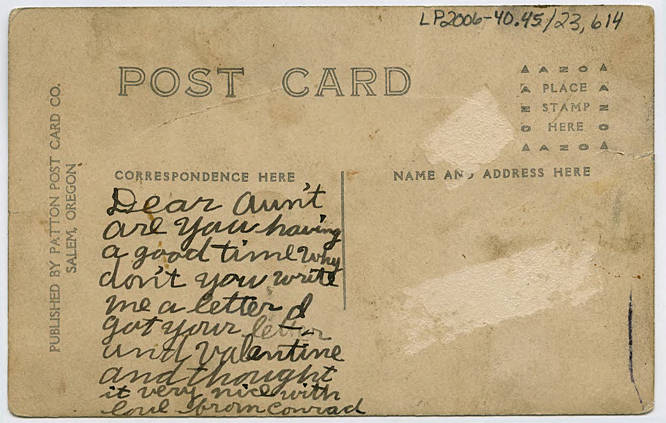 LP2006-40.45/23,614
POST CARD
A A Z O A
A PLACE Z
N STAMP N
O HERE O
A A Z O A
CORRESPONDENCE HERE
NAME AND ADDRESS HERE
PUBLISHED BY PATTON POST CARD CO.
SALEM, OREGON
Dear Aun't
are you having
a good time why
don't you write
me a letter I
got your letter
and Valentine
and thought
it very nice with
love from Conrad